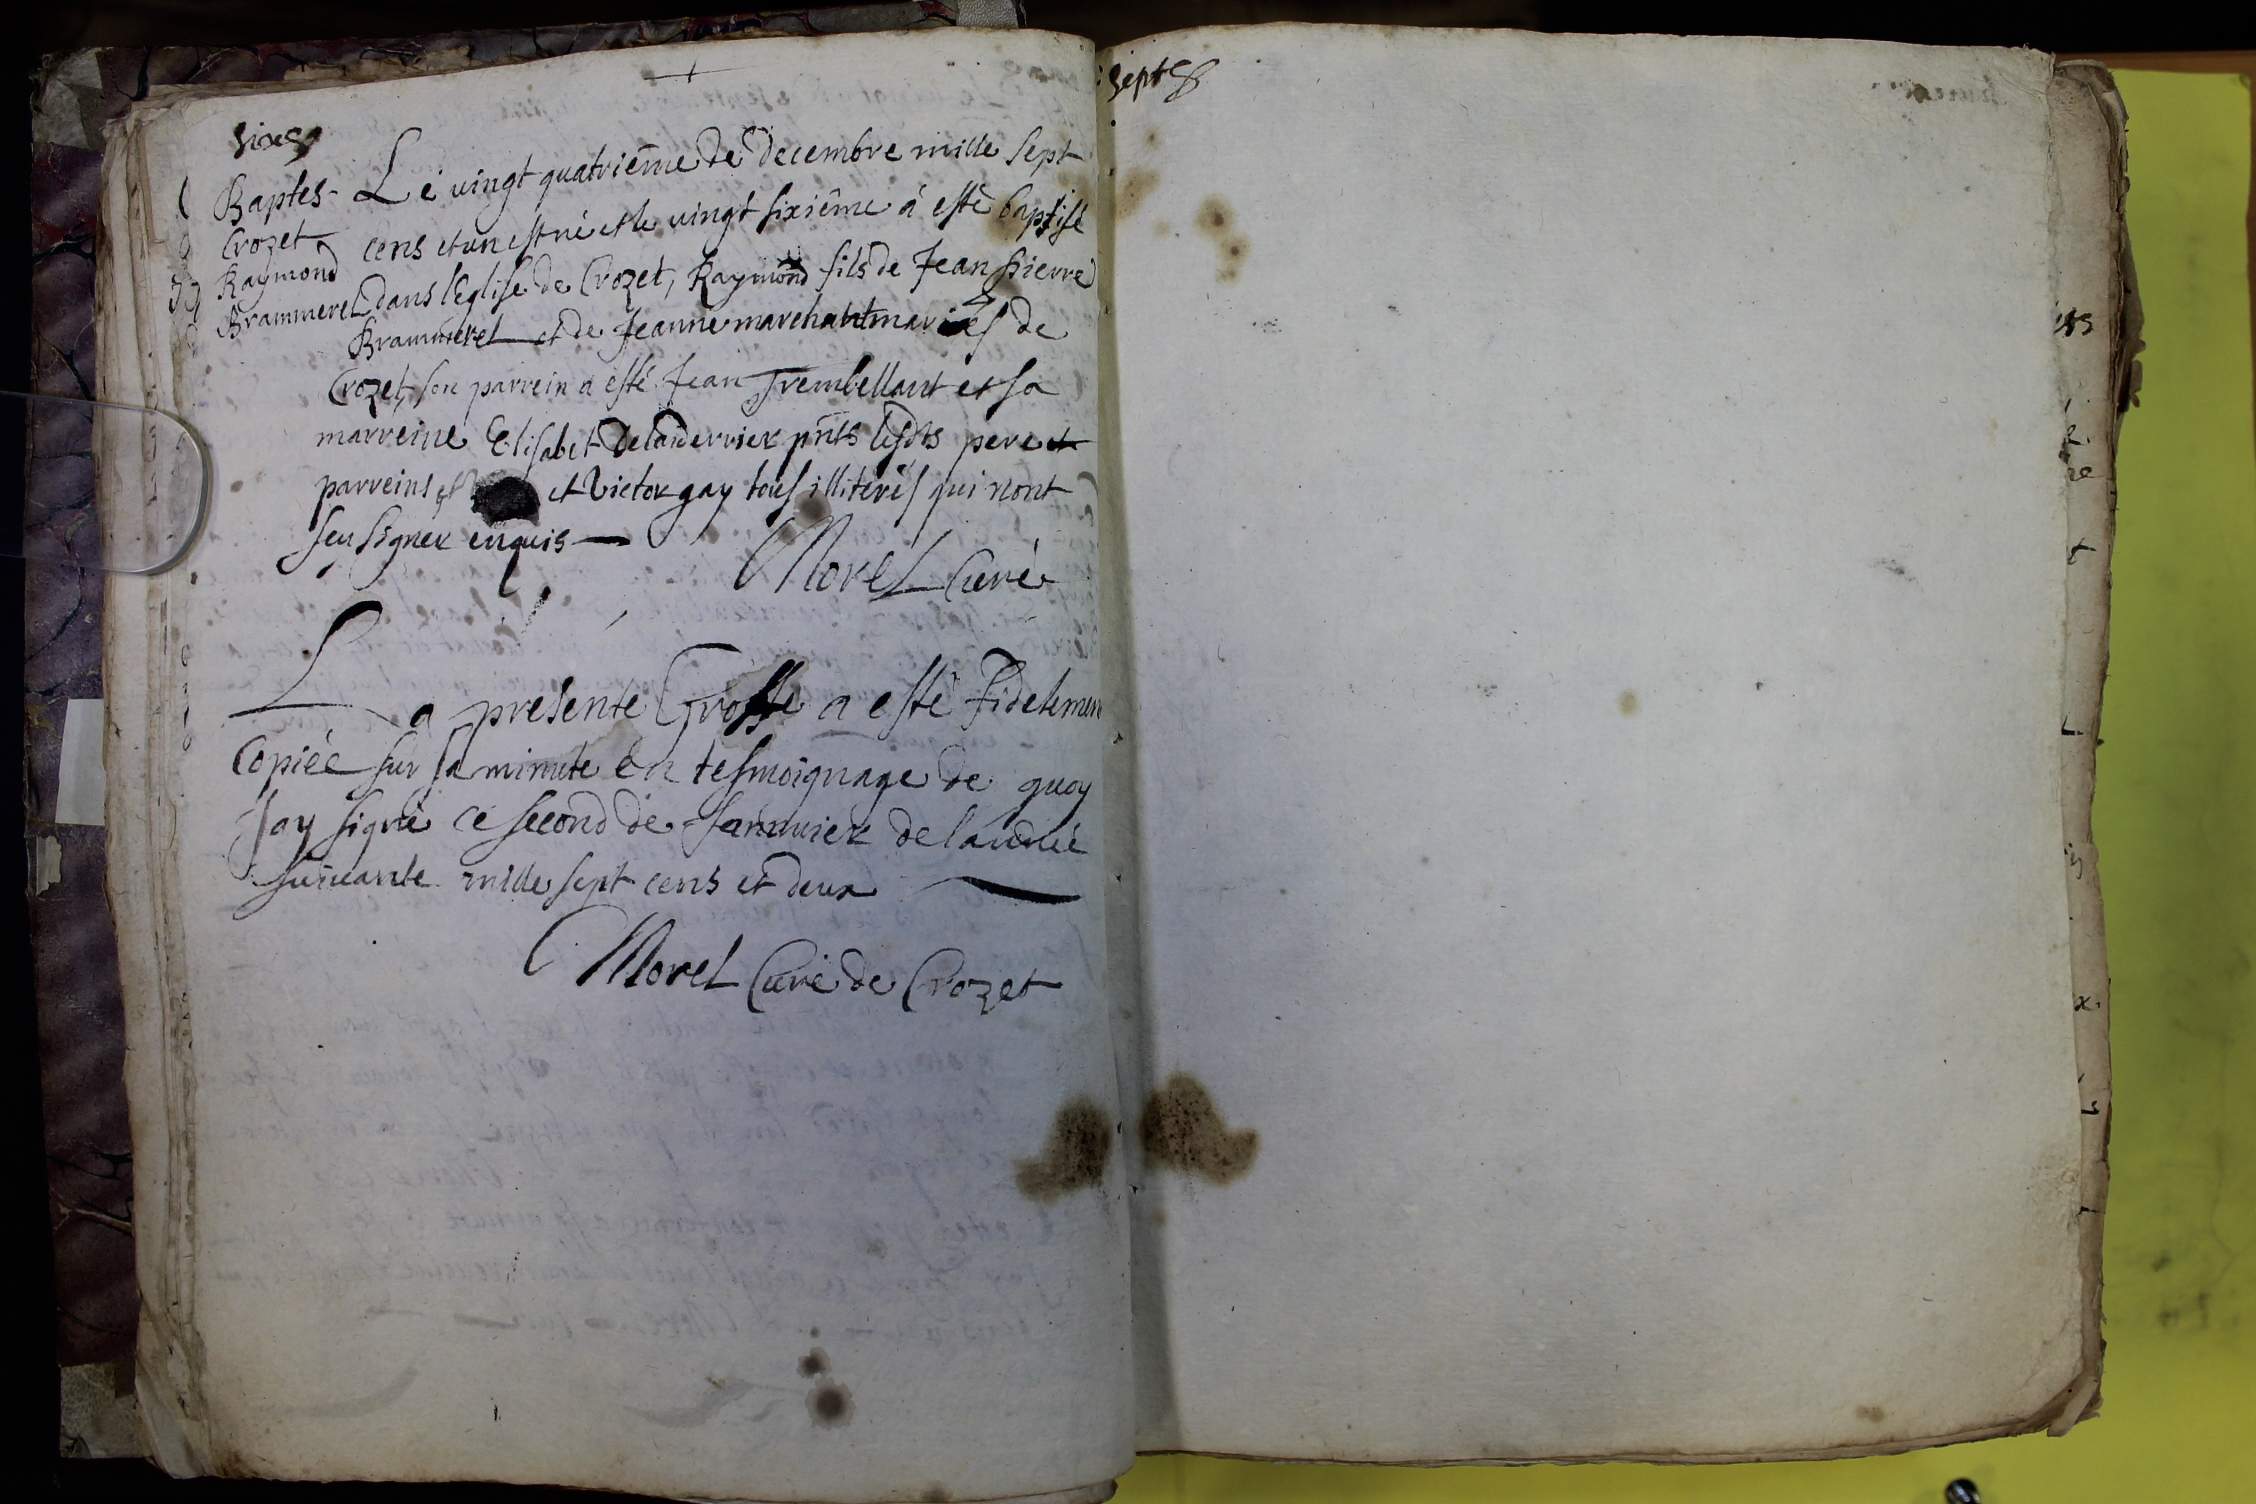 sixe
Baptes- Le vingt quatriéme de decembre mille sept
Crozet cens et un est né et le vingt sixiême à esté baptisé
Raymond dans l'Eglise de Crozet, Raymond fils de Jean Pierre
Brammerel
Brammerel et de Jeanne marchant mariés de
Crozet, son parrein a esté Jean Trembellant et sa
marreine Elisabet Delaiderrier pnts lesdts pere et
parreins et et Victor gay tous illiterés qui n'ont
seu signer enquis
Morel Curé
La presente Grosse a esté fidelemen
Copiée sur sa minute En tesmoignage de quoy
Jay signé ce second de Jannvier de l'année
suivante mille sept cens et deux
Morel Curé de Crozet
sept